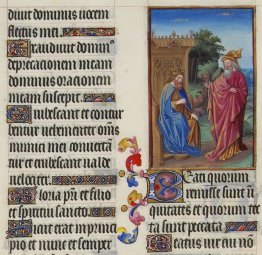 divit dominus vocem
fletus mei.
Exaudivit dominus
deprecacionem meam
dominus oracionem
meam suscepit.
Erubescant et contur
bentur vehementer omnes
inimici mei convertan
tur et erubescant valde
velociter.
Gloria patri et filio
et spiritui sancto.
Sicut erat in princi
pio et nunc et semper
Beati quorum
remisse sunt ini
quitates et quorum tec
ta sunt peccata.
Beatus vir cui non